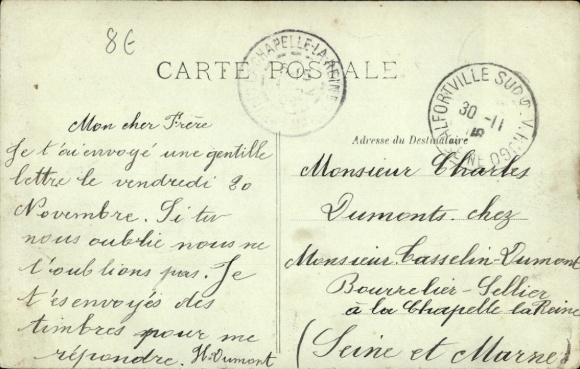 8€
CHAPELLE-LA-REINE
CARTE POSTALE
ALFORTVILLE SUD
30 -11
SEINE
Mon cher Frère
Je t'ai envoyé une gentille
lettre le vendredi 20
Novembre. Si tu
nous oublie nous ne
t'oublions pas. Je
t'es envoyés des
timbres pour me
répondre. H. Dumont
Adresse du Destinataire
Monsieur Charles
Dumonts. chez
Monsieur Casselin-Dumont
Bourrelier-Sellier
à la Chapelle la Reine
(Seine et Marne)